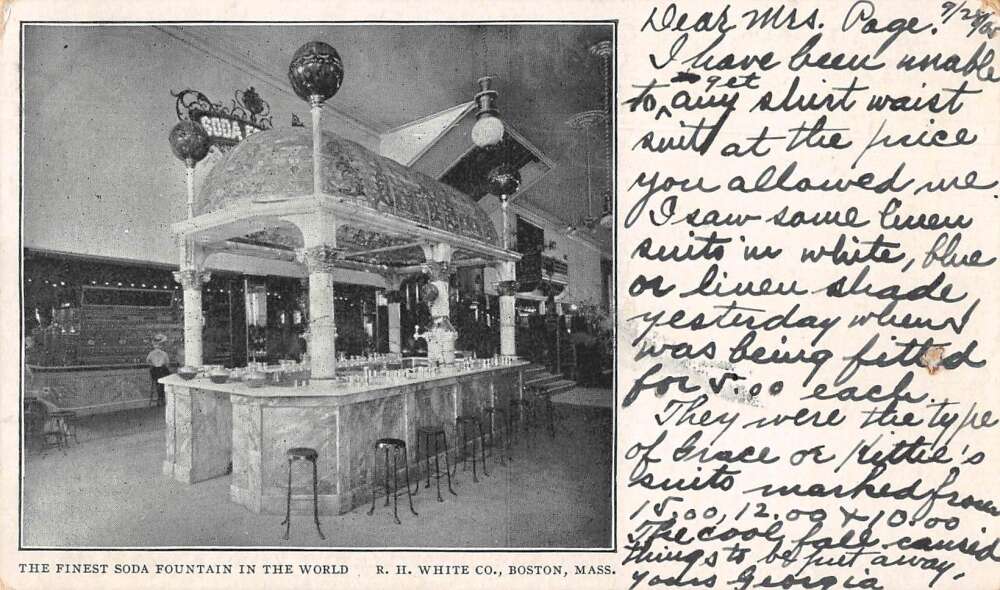 SODA
THE FINEST SODA FOUNTAIN IN THE WORLD R. H. WHITE CO., BOSTON, MASS.
Dear Mrs. Page. 9/28/05
I have been unable
to get any shirt waist
suit at the price
you allowed me.
I saw some linen
suits in white, blue
or linen shade,
yesterday when I
was being fitted
for 5.00 each.
They were the type
of Grace or Kittie's
suits marked from
15.00, 12.00 & 10.00.
The cool fall caused
things to be put away.
Yours Georgia